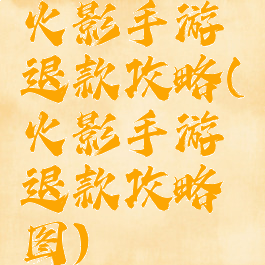 火影手游
退款攻略(
火影手游
退款攻略
图)